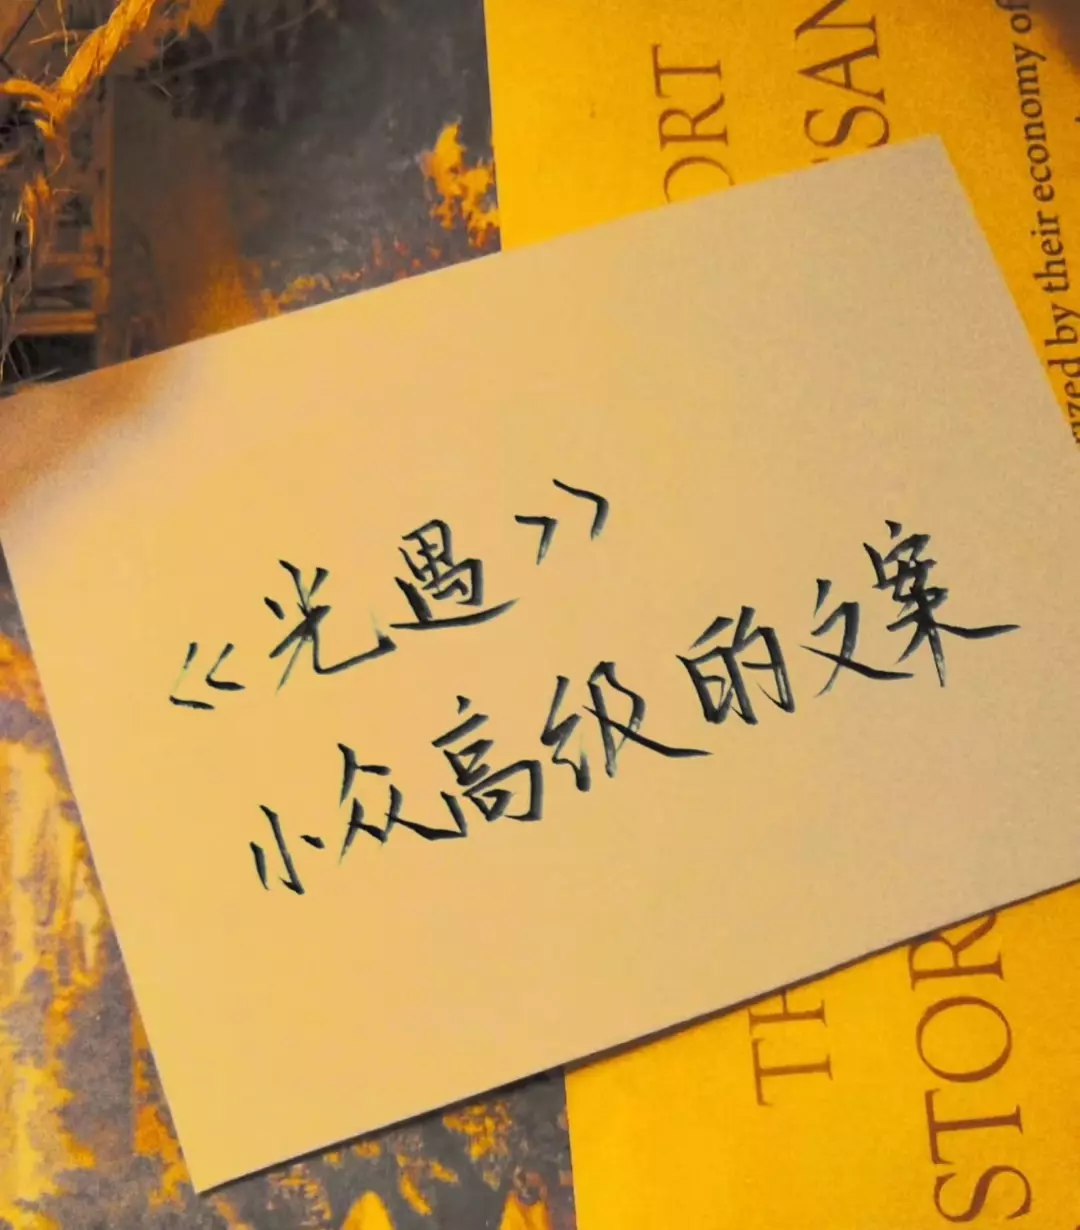 《光遇》
小众高级的文案
ORT
SAN
rized by their economy of
TH
STOR
STO